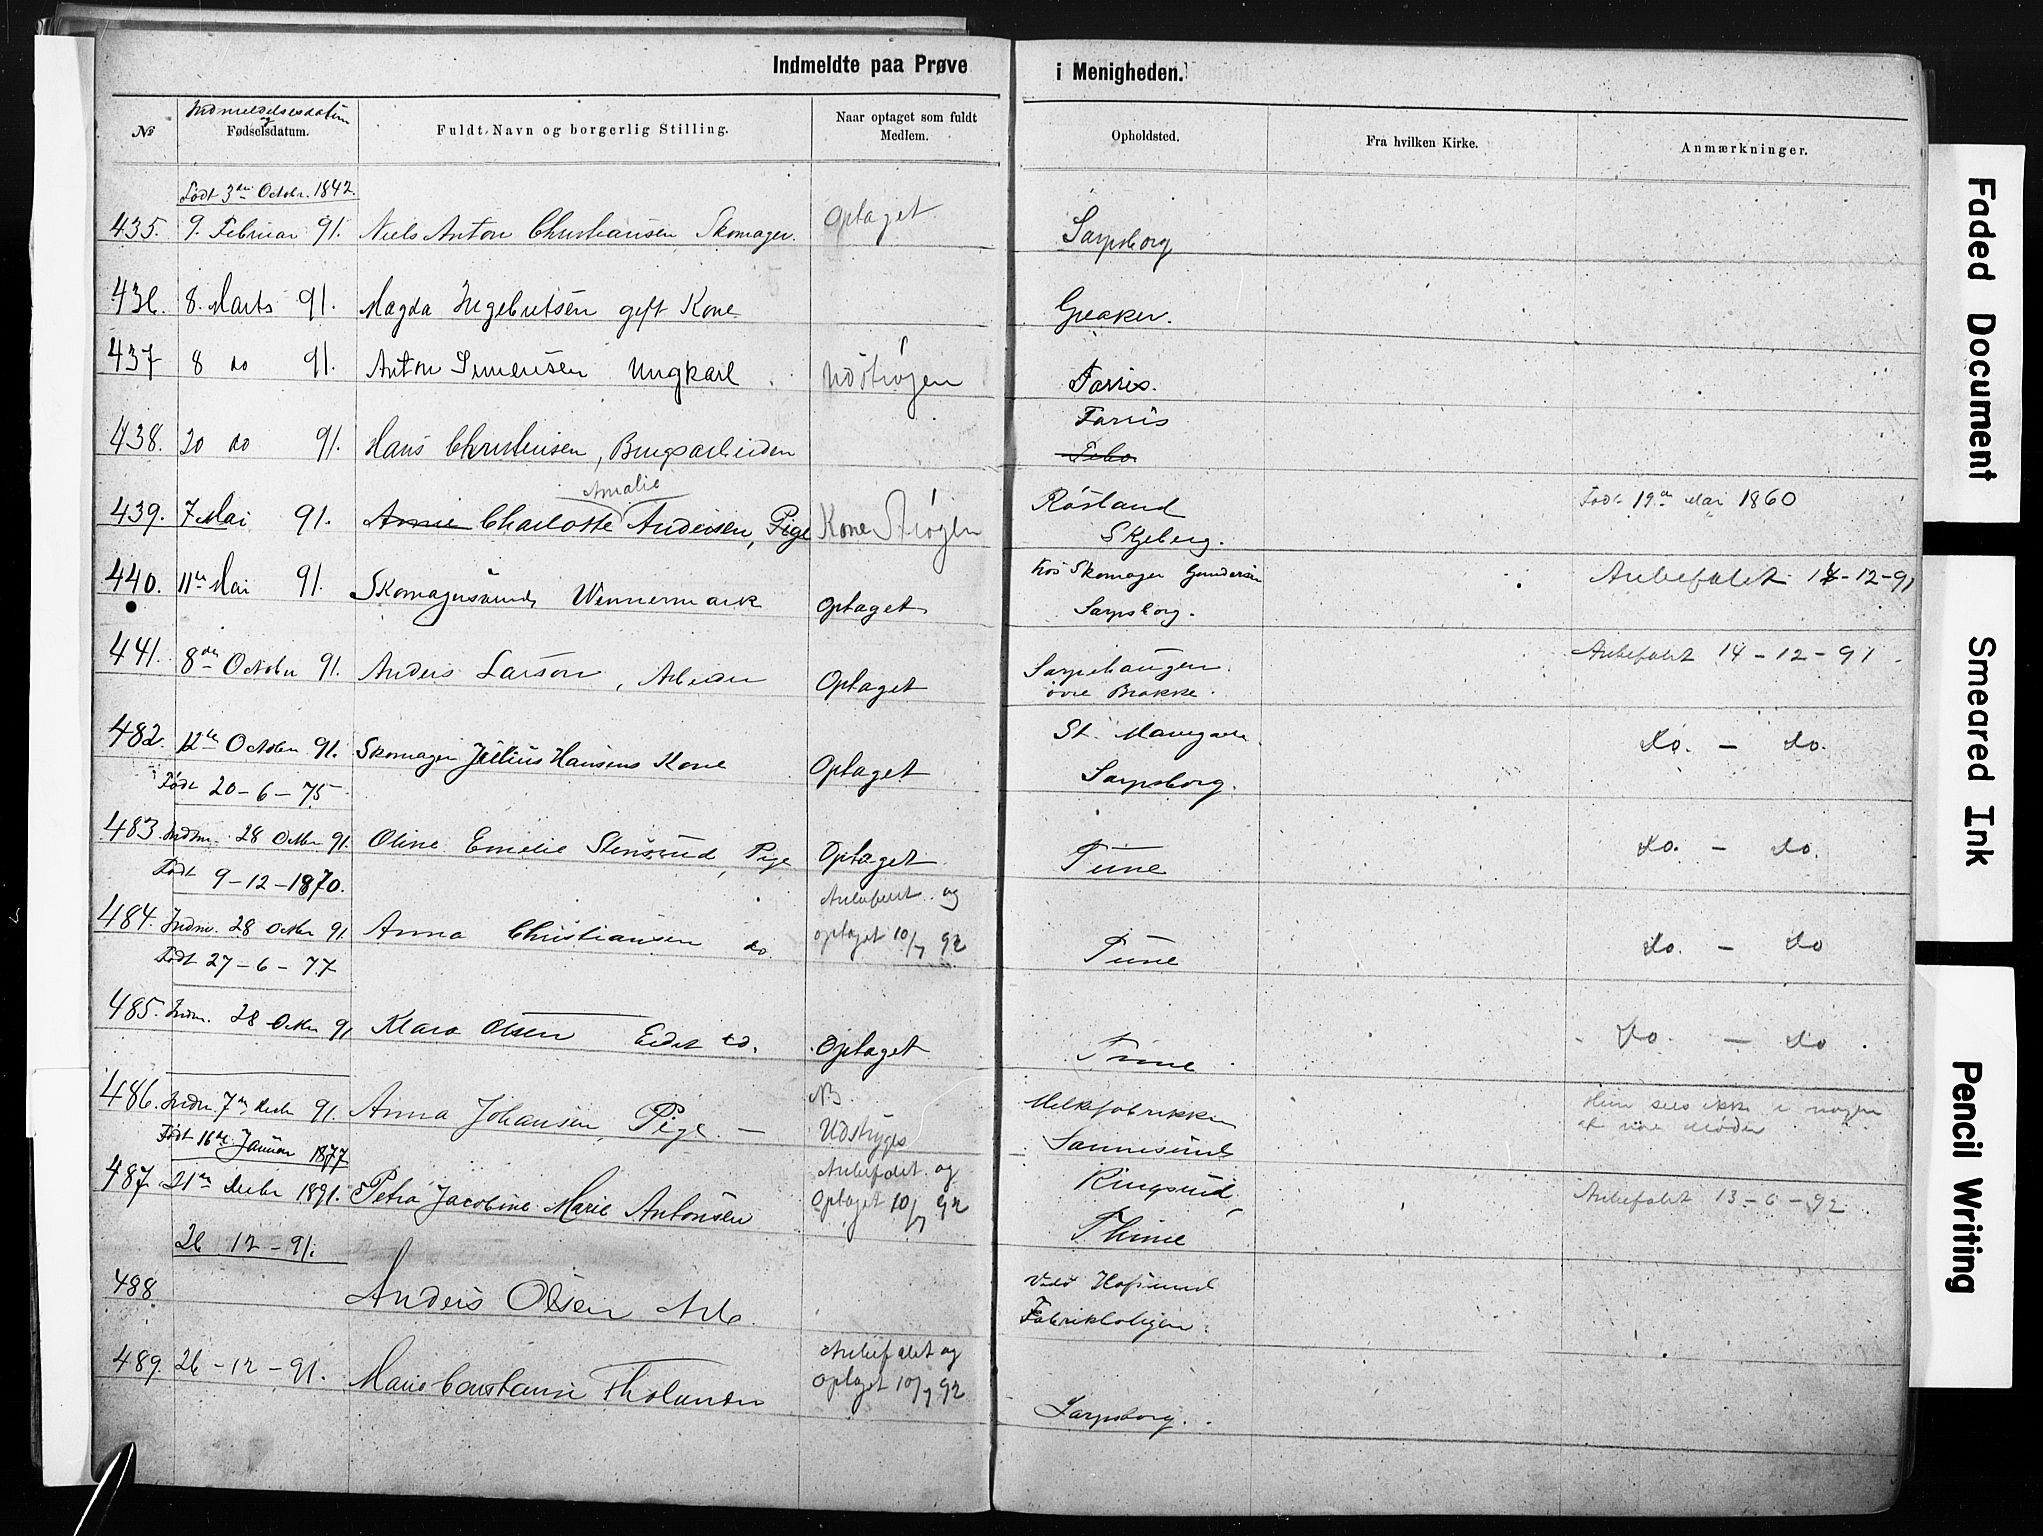 Indmeldte paa Prøve i Menigheden.
№ Indmeldelsesdatum og Fødselsdatum. Fuldt Navn og borgerlig Stilling. Naar optaget som fuldt Medlem. Opholdsted. Fra hvilken Kirke. Anmærkninger.
Født 3die Octobr. 1842.
435. 9. Februar 91. Niels Anton Christiansen, Skomager. Optaget Sarpsborg
436. 8. Marts 91. Magda Ingebretsen gift Kone Greaker.
437 8 do 91. Anton Simensen Ungkarl Udströgen Farris.
Farris
438. 20 do 91. Hans Christensen, Brugsarbeider Febo
Amalie
439. 7 Mai 91. Annie Charlotte Andersen, Pige Kone Strøgen Röstand Født 19de Mai 1860
Skjeberg.
440. 11te Mai 91. Skomagersvend Wennermark Optaget hos Skomager Gundersen Anbefalet 14-12-91
Sarpsborg.
441. 8de October 91. Anders Larson, Arbeider Optaget Sarpehaugen Anbefalet 14-12-91
øvre Brække.
482. 12te October 91. Skomager Jullius Hansens Kone Optaget St. Mariegade do. - do.
Sarpsborg.
Født 20-6-75
483. Indm. 28 Octbr 91. Oline Emelie Stensrud, Pige Optaget Tune do. - do.
Født 9-12-1870.
484. Indm. 28 Octbr 91 Anna Christiansen do. Anbefalet og optaget 10/7 92 Tune do. - do
Født 27-6-77
485. Indm. 28 Octbr 91 Klara Olsen Eidet do. Optaget Tune do - do
486. Indm 7de Decbr 91. Anna Johansen, Pige. - NB. Udstryges Melkefabrikken Hun sees ikke i nogen af vore Møder
Sannesund
Født 16de Januar 1877
487. 21de Decbr 1891. Petra Jacobine Marie Antonsen Anbefalet og Optaget 10/7 92 Ringsrud, Anbefalet 13-6-92
Thune
26 12-91.
488 Anders Olsen Arb. Ved Hafsund
Fabrikboligen.
489. 26-12-91. Marie Constance Tholansen Anbefalet og optaget 10/7 92 Sarpsborg.
Faded Document
Smeared Ink
Pencil Writing